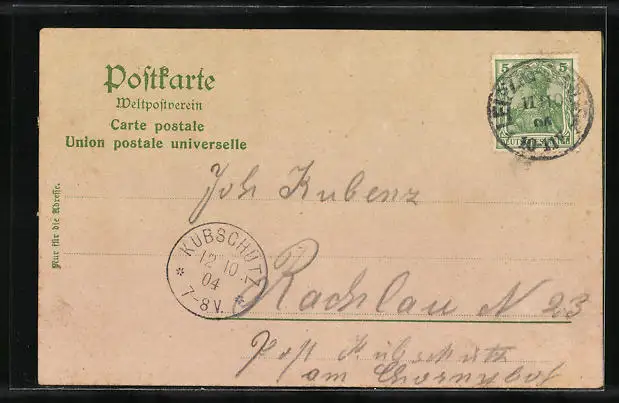 Postkarte
Weltpostverein
Carte postale
Union postale universelle
5 5
LEIPZIG
11 10
04
10-11 V.
Nur für die Adresse.
Joh Kubenz
KUBSCHÜTZ
12 10
04
7-8 V.
Rachlau N 23
Post Kubschütz
am